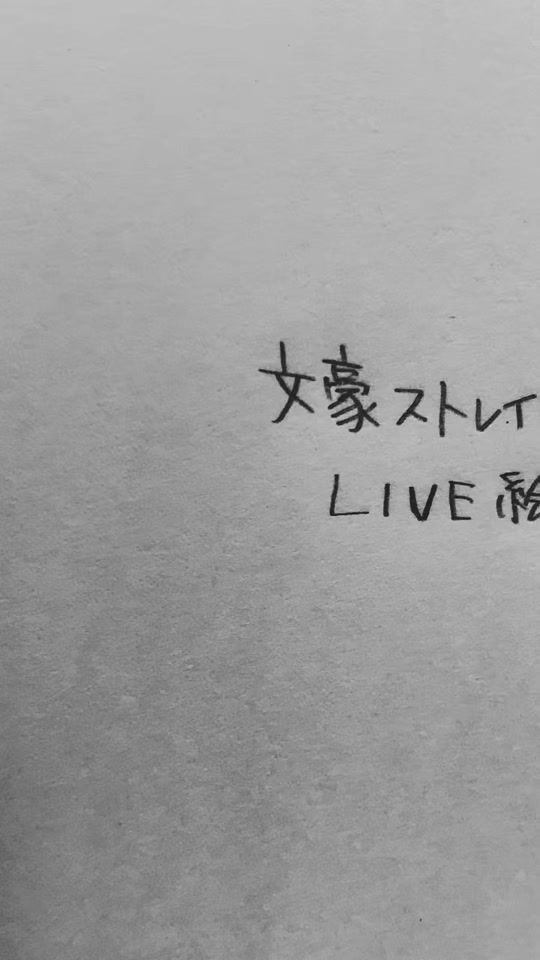 文豪ストレイ
LIVE 絵